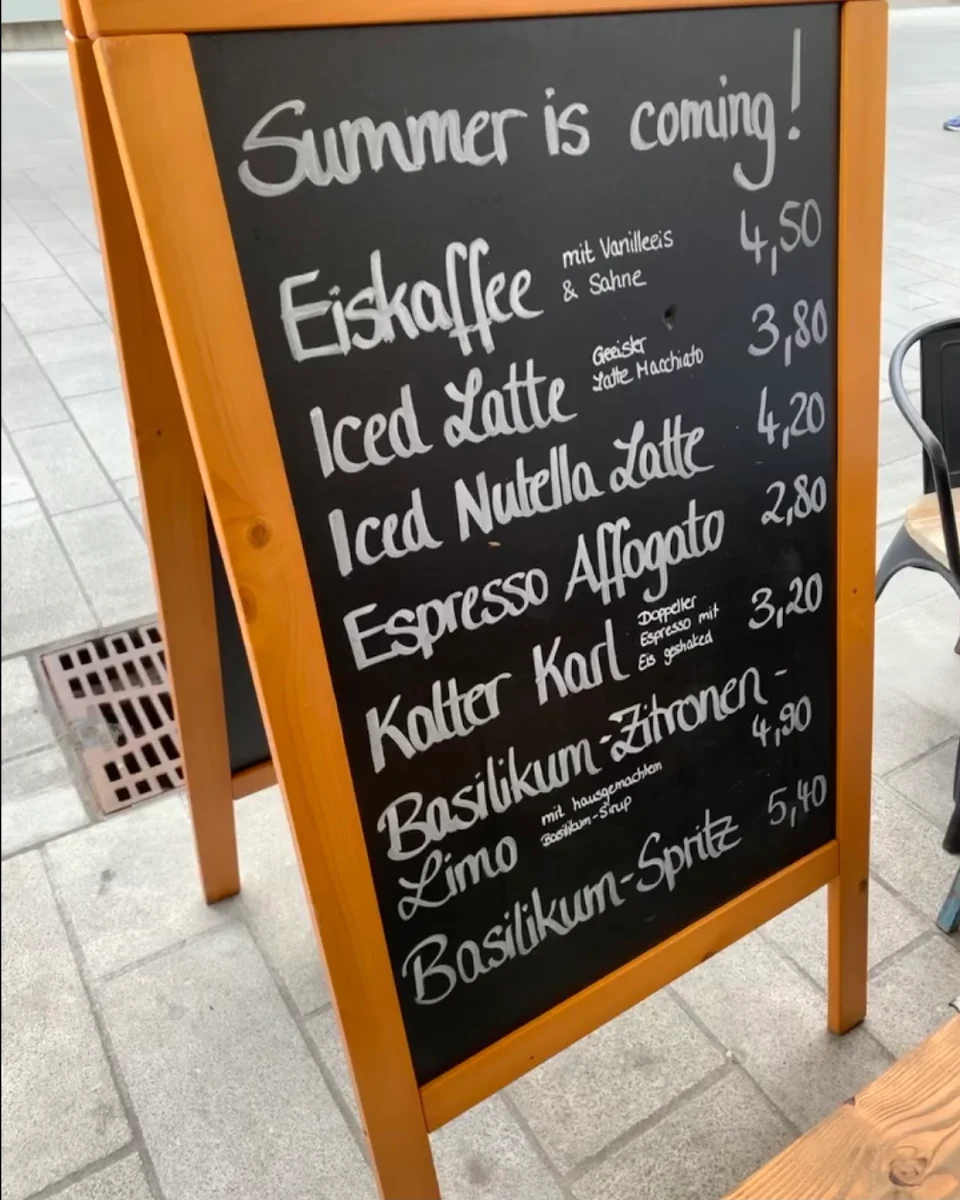 Summer is coming!
Eiskaffee mit Vanilleeis 4,50
& Sahne
Iced Latte Geeister 3,80
Latte Macchiato
Iced Nutella Latte 4,20
Espresso Affogato 2,80
Kalter Karl Doppelter 3,20
Espresso mit
Eis geshaked
Basilikum-Zitronen-
Limo mit hausgemachtem 4,90
Basilikum-Sirup
Basilikum-Spritz 5,40